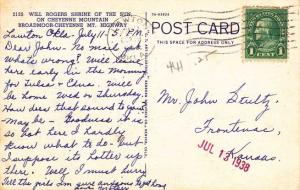 2133 WILL ROGERS SHRINE OF THE SUN,
ON CHEYENNE MOUNTAIN
BROADMOOR-CHEYENNE MT. HIGHWAY
7A-H3824
POST CARD
THIS SPACE FOR ADDRESS ONLY
1
Lawton Okla. July 11 - 5. P.M.
Dear John - No mail yet
What's wrong? Will leave
here early in the Morning
for Tulsa &
be home Wed or Thursday.
How does that sound to you
- may be - Goodness it is
so Hot here I hardly
know what to do. But
I suppose its hotter up
there. Well, I must hurry
Tell the girls I'm
Mr. John Stultz
Frontenac
Kansas.
JUL 13 1938